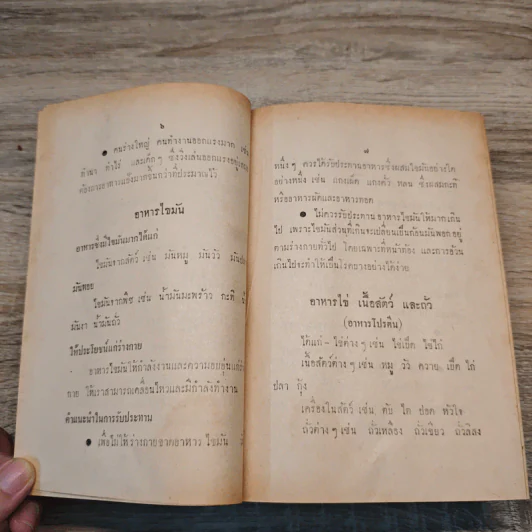 ๖
● คนร่างใหญ่ คนทำงานออกแรงมาก เช่น
ทำนา ทำไร่ และเด็กๆ ซึ่งวิ่งเล่นออกแรงอยู่เสมอ
ต้องการอาหารแป้งมากขึ้นกว่าที่ประมาณไว้
อาหารไขมัน
อาหารซึ่งมีไขมันมากได้แก่
ไขมันจากสัตว์ เช่น มันหมู มันวัว
มันหอย
ไขมันจากพืช เช่น น้ำมันมะพร้าว กะทิ
มันงา น้ำมันถั่ว
ให้ประโยชน์แก่ร่างกาย
อาหารไขมันให้กำลังงานและความอบอุ่นแก่ร่าง
กาย ให้เราสามารถเคลื่อนไหวและมีกำลังทำงาน
คำแนะนำในการรับประทาน
● เพื่อไม่ให้ร่างกายขาดอาหาร ไขมัน
๗
หนึ่งๆ ควรได้รับประทานอาหารซึ่งผสมไขมันอย่างใด
อย่างหนึ่ง เช่น แกงเผ็ด แกงคั่ว หลน ซึ่งผสมกะทิ
หรืออาหารผัดและอาหารทอด
● ไม่ควรรับประทานอาหารไขมันให้มากเกิน
ไป เพราะไขมันส่วนที่เกินจะเปลี่ยนเป็นก้อนมันพอกอยู่
ตามร่างกายทั่วไป โดยเฉพาะที่หน้าท้อง และการอ้วน
เกินไปจะทำให้เป็นโรคบางอย่างได้ง่าย
อาหารไข่ เนื้อสัตว์ และถั่ว
(อาหารโปรตีน)
ได้แก่ - ไข่ต่างๆ เช่น ไข่เป็ด ไข่ไก่
เนื้อสัตว์ต่างๆ เช่น หมู วัว ควาย เป็ด ไก่
ปลา กุ้ง
เครื่องในสัตว์ เช่น ตับ ไต ปอด หัวใจ
ถั่วต่างๆ เช่น ถั่วเหลือง ถั่วเขียว ถั่วลิสง